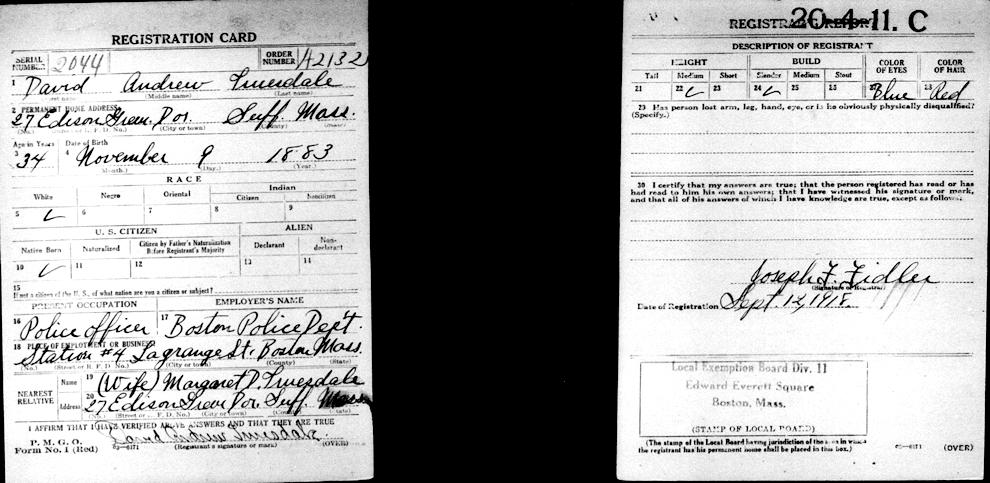 REGISTRATION CARD
SERIAL NUMBER 2044 ORDER NUMBER A2132
1 David Andrew Truesdale
(Middle name) (Last name)
2 PERMANENT HOME ADDRESS:
27 Edison Green Dor. Suff. Mass.
(No.) (City or town) (County) (State)
Age in Years Date of Birth
3 34 4 November 9 1883
(Month.) (Day.) (Year.)
RACE
White Negro Oriental Indian
Citizen Noncitizen
5 ✓ 6 7 8 9
U. S. CITIZEN ALIEN
Native Born Naturalized Citizen by Father's Naturalization Before Registrant's Majority Declarant Non-declarant
10 ✓ 11 12 13 14
15
If not a citizen of the U. S., of what nation are you a citizen or subject?
PRESENT OCCUPATION EMPLOYER'S NAME
16 Police officer 17 Boston Police Dep't.
18 PLACE OF EMPLOYMENT OR BUSINESS
Station #4 Lagrange St. Boston Mass.
(No.) (Street or R. F. D. No.) (City or town) (County) (State)
NEAREST RELATIVE Name 19 (Wife) Margaret P. Truesdale
Address 20 27 Edison Green Dor. Suff. Mass
(No.) (Street or R. F. D. No.) (City or town) (County) (State)
I AFFIRM THAT I HAVE VERIFIED ABOVE ANSWERS AND THAT THEY ARE TRUE
P. M. G. O.
Form No. 1 (Red) 03—6171 David Andrew Truesdale
(Registrant's signature or mark) (OVER)
REGISTRAR'S REPORT 20-4-11. C
DESCRIPTION OF REGISTRANT
HEIGHT BUILD COLOR OF EYES COLOR OF HAIR
Tall Medium Short Slender Medium Stout
21 22 ✓ 23 24 ✓ 25 26 27 Blue 28 Red
29 Has person lost arm, leg, hand, eye, or is he obviously physically disqualified?
(Specify.)
30 I certify that my answers are true; that the person registered has read or has
had read to him his own answers; that I have witnessed his signature or mark,
and that all of his answers of which I have knowledge are true, except as follows:
Joseph F. Fidler
(Signature of Registrar)
Date of Registration Sept 12, 1918
Local Exemption Board Div. 11
Edward Everett Square
Boston, Mass.
(STAMP OF LOCAL BOARD)
(The stamp of the Local Board having jurisdiction of the area in which
the registrant has his permanent home shall be placed in this box.)
03—6171 (OVER)